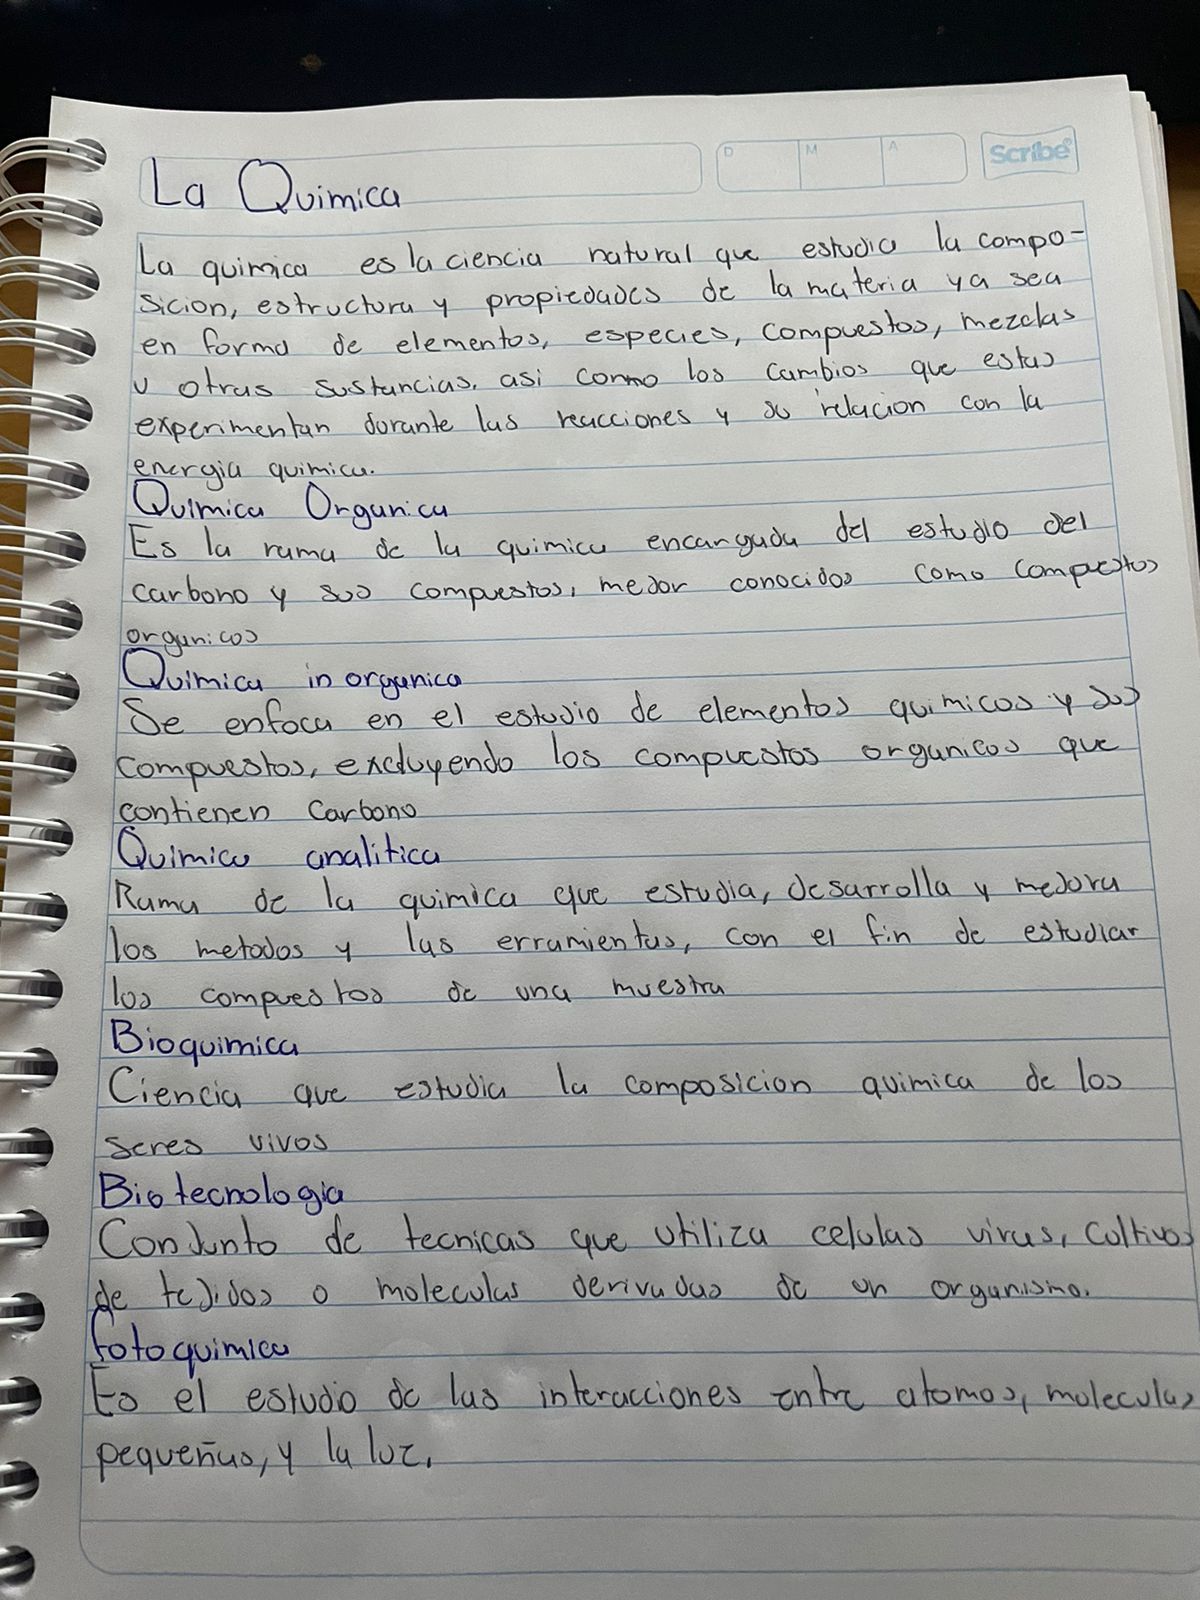 D M A Scribe
La Quimica
La quimica es la ciencia natural que estudia la compo-
sicion, estructura y propiedades de la materia ya sea
en forma de elementos, especies, compuestos, mezclas
u otras sustancias, asi como los cambios que estas
experimentan durante las reacciones y su relacion con la
energia quimica.
Quimica Organica
Es la rama de la quimica encargada del estudio del
carbono y sus compuestos, mejor conocidos como compuestos
organicos
Quimica inorganica
Se enfoca en el estudio de elementos quimicos y sus
compuestos, excluyendo los compuestos organicos que
contienen Carbono
Quimica analitica
Rama de la quimica que estudia, desarrolla y mejora
los metodos y las erramientas, con el fin de estudiar
los compuestos de una muestra
Bioquimica
Ciencia que estudia la composicion quimica de los
seres vivos
Biotecnologia
Conjunto de tecnicas que utiliza celulas virus, cultivos
de tejidos o moleculas derivadas de un organismo.
fotoquimica
Es el estudio de las interacciones entre atomos, moleculas
pequeñas, y la luz.